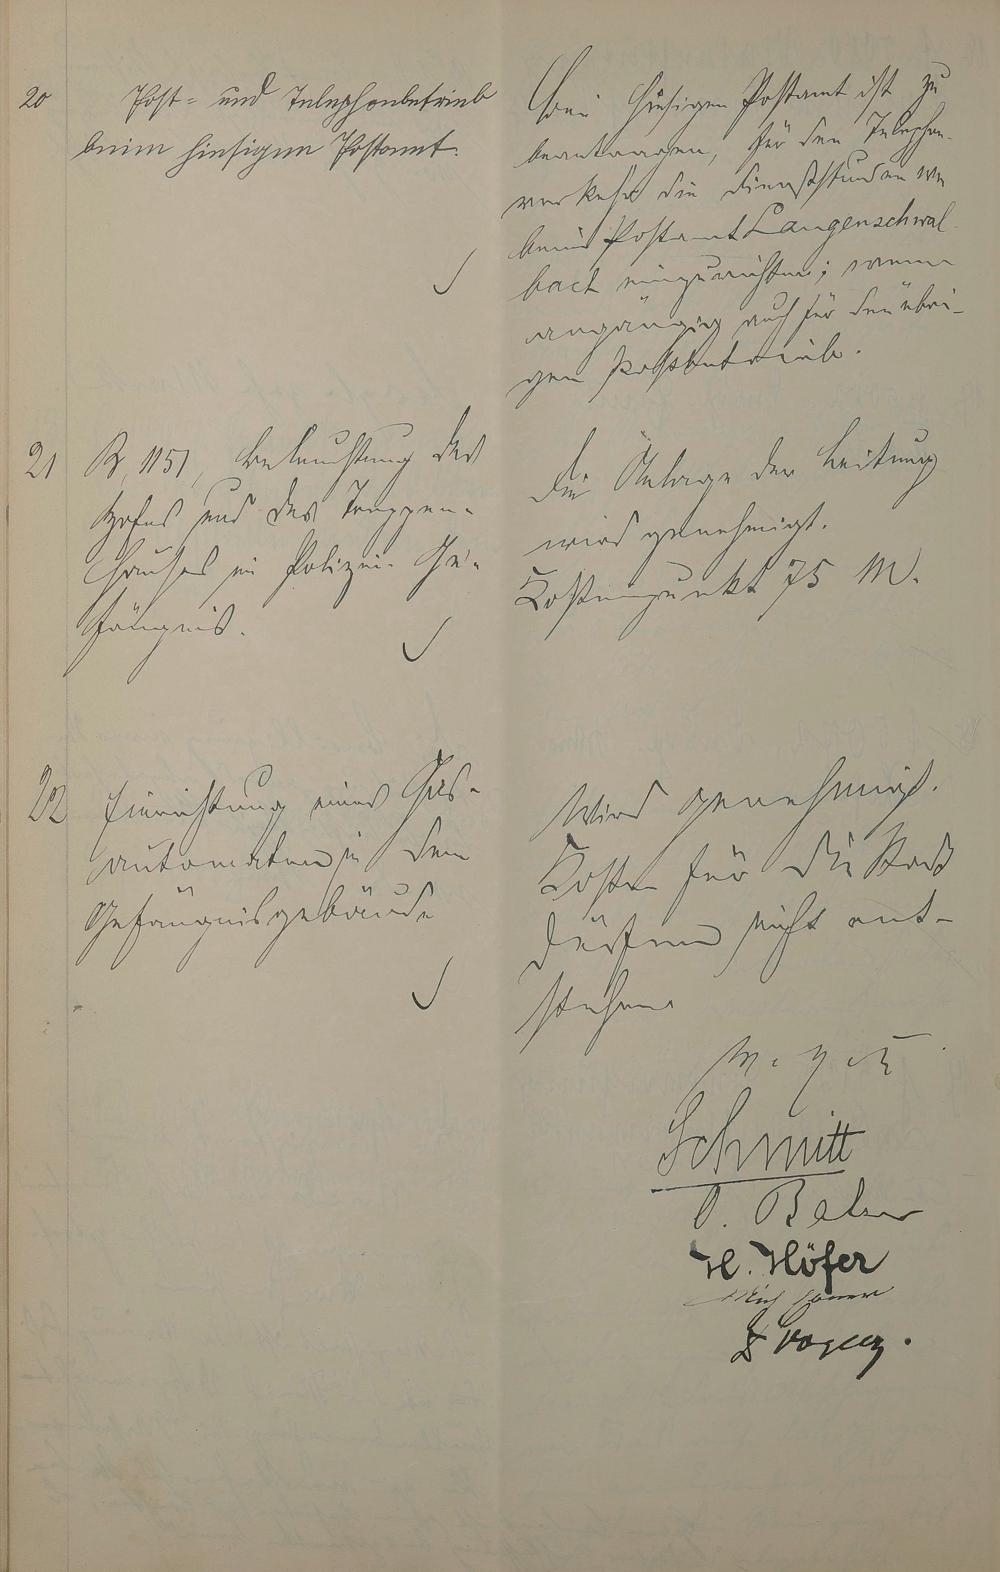 20
Post- und Telephonbetrieb
beim hiesigen Postamt.
Beim hiesigen Postamt ist zu
beantragen, für den Telephon-
verkehr die Dienststunden wie
beim Postamt Langenschwal-
bach einzurichten; wenn
angängig auch für den übri-
gen Postbetrieb.
21
B. 1151, Beleuchtung des
Hofes und des Treppen-
hauses im Polizei-Ge-
fängnis.
Die Anlage der Leitung
wird genehmigt.
Kostenpunkt 75 M.
22
Einrichtung eines Gas-
automaten in dem
Gefängnisgebäude
Wird genehmigt.
Kosten für die Stadt
dürfen nicht ent-
stehen
Schmitt
H. Höfer